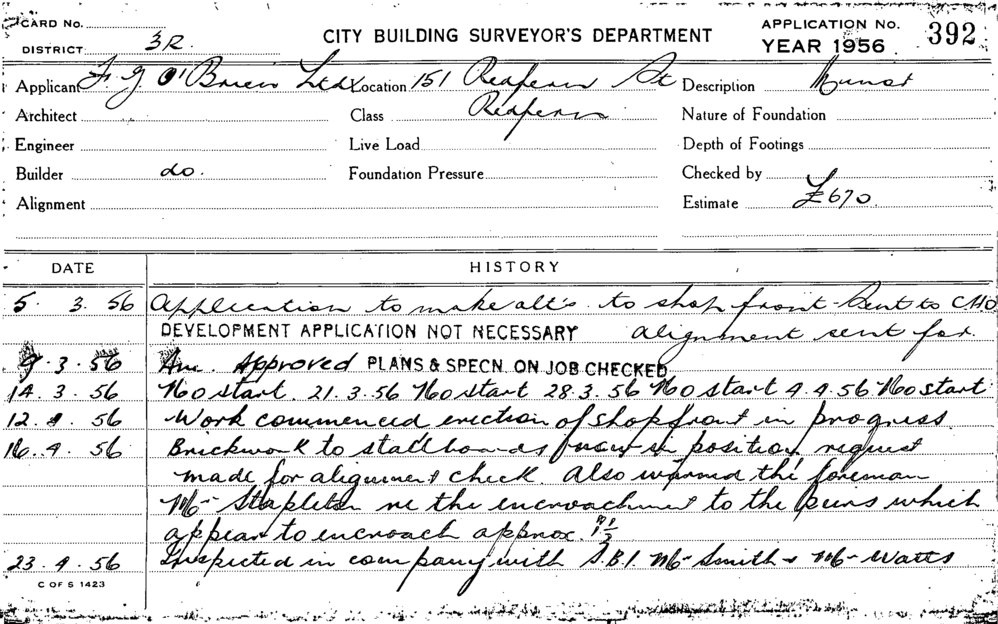 CARD No.
DISTRICT 3R.
CITY BUILDING SURVEYOR'S DEPARTMENT
APPLICATION No. 392
YEAR 1956
Applicant F. J. O'Brien Ltd Location 151 Redfern St Description
Architect Class Redfern Nature of Foundation
Engineer Live Load Depth of Footings
Builder do. Foundation Pressure Checked by
Alignment Estimate £670.
DATE HISTORY
5. 3. 56 Application to make alt's to shop front Sent to CHO
DEVELOPMENT APPLICATION NOT NECESSARY alignment sent for
9.3.56 Approved PLANS & SPECN. ON JOB CHECKED
14.3.56 No start. 21.3.56 No start 28.3.56 No start 4.4.56 No start
12.4.56 Work commenced erection of shopfront in progress
16.4.56 Brickwork to stallboards now in position, request
made for alignment check. Also warned the foreman
Mr Stapleton re the encroachment to the piers which
appear to encroach approx. 1½"
23.4.56 Inspected in company with S.B.I. Mr Smith & Mr Watts
C OF S 1423